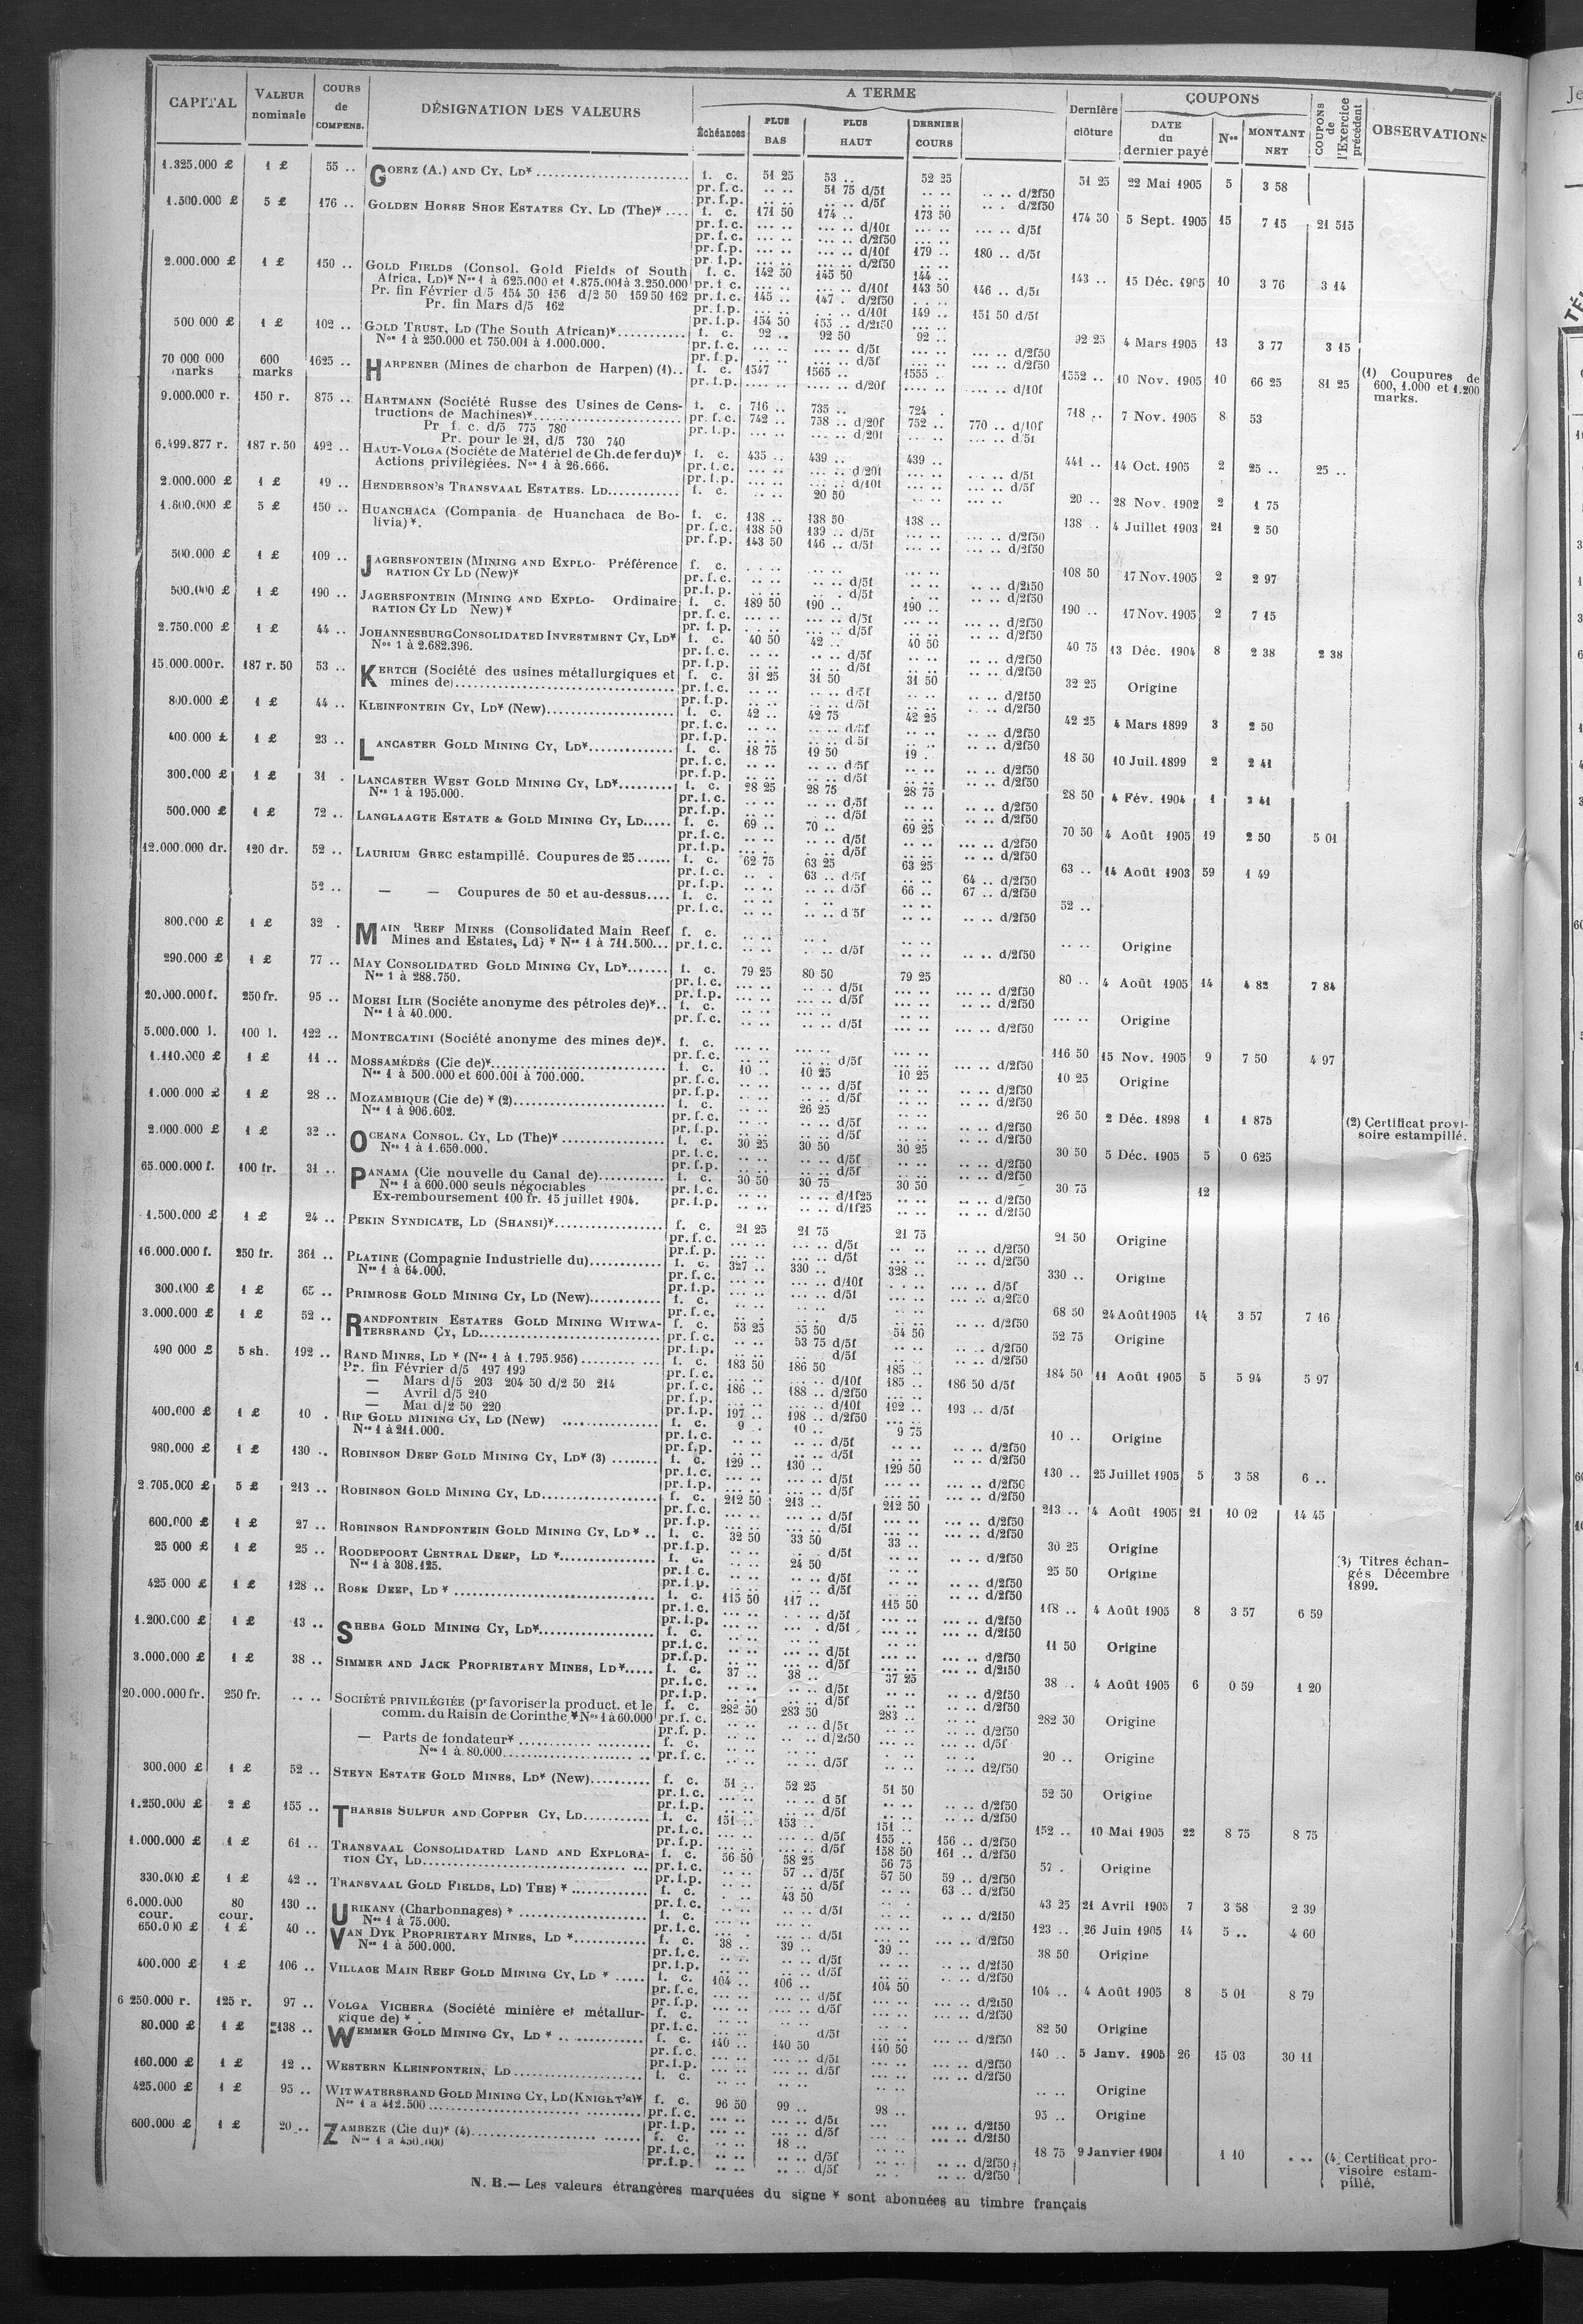 CAPITAL VALEUR nominale COURS de COMPENS. DÉSIGNATION DES VALEURS A TERME Échéances PLUS BAS PLUS HAUT DERNIER COURS Dernière clôture COUPONS DATE du dernier payé Nos MONTANT NET COUPONS de l'Exercice précédent OBSERVATIONS
1.325.000 £ 1 £ 55 .. GOERZ (A.) AND CY, LD* f. c. 51 25 53 .. 52 25 51 25 22 Mai 1905 5 3 58
pr. f. c. .. .. 51 75 d/5f .. .. .. .. d/2f50
pr. f. p. .. .. .. .. d/5f .. .. .. .. d/2f50
1.500.000 £ 5 £ 176 .. GOLDEN HORSE SHOE ESTATES CY. LD (The)* f. c. 171 50 174 .. 173 50 174 50 5 Sept. 1905 15 7 15 21 515
pr. f. c. ... .. ... .. d/10f ... .. ... .. d/5f
pr. f. c. ... .. ... .. d/2f50 ... ..
pr. f. p. ... .. ... .. d/10f 179 .. 180 .. d/5f
pr. f. p. ... .. ... .. d/2f50 ... ..
2.000.000 £ 1 £ 150 .. GOLD FIELDS (Consol. Gold Fields of South f. c. 142 50 145 50 144 .. 143 .. 15 Déc. 1905 10 3 76 3 14
Africa, LD)* Nos 1 à 625.000 et 1.875.001 à 3.250.000 pr. f. c. ... .. ... .. d/10f 143 50 146 .. d/5f
Pr. fin Février d/5 154 50 156 d/2 50 159 50 162 pr. f. c. 145 .. 147 . d/2f50
Pr. fin Mars d/5 162 pr. f. p. ... .. ... .. d/10f 149 .. 151 50 d/5f
pr. f. p. 154 50 155 .. d/2f50
500 000 £ 1 £ 102 .. GOLD TRUST, LD (The South African)* f. c. 92 .. 92 50 92 .. 92 25 4 Mars 1905 13 3 77 3 15
Nos 1 à 250.000 et 750.001 à 1.000.000. pr. f. c. ... .. ... .. d/5f ... .. ... .. d/2f50
pr. f. p. ... .. ... .. d/5f ... .. ... .. d/2f50
70 000 000 marks 600 marks 1625 .. HARPENER (Mines de charbon de Harpen) (1) f. c. 1547 1565 .. 1555 .. 1552 .. 10 Nov. 1905 10 66 25 81 25 (1) Coupures de 600, 1.000 et 1.200 marks.
pr. f. p. .... .. .... .. d/20f .... .. .... .. d/10f
9.000.000 r. 150 r. 875 .. HARTMANN (Société Russe des Usines de Cons- f. c. 716 .. 735 .. 724 . 718 .. 7 Nov. 1905 8 53
tructions de Machines)* pr. f. c. 742 .. 758 .. d/20f 752 .. 770 .. d/10f
Pr f. c. d/5 775 780 pr. f. p. ... .. ... .. d/20f ... .. ... .. d/5f
Pr. pour le 21, d/5 730 740
6.499.877 r. 187 r. 50 492 .. HAUT-VOLGA (Société de Matériel de Ch. de fer du)* f. c. 435 .. 439 .. 439 .. 441 .. 14 Oct. 1905 2 25 .. 25 ..
Actions privilégiées. Nos 1 à 26.666. pr. f. c. ... .. ... .. d/20f ... .. ... .. d/5f
pr. f. p. ... .. ... .. d/10f ... .. ... .. d/5f
2.000.000 £ 1 £ 19 .. HENDERSON'S TRANSVAAL ESTATES. LD f. c. .. .. 20 50 .. .. 20 .. 28 Nov. 1902 2 1 75
1.600.000 £ 5 £ 150 .. HUANCHACA (Compania de Huanchaca de Bo- f. c. 138 .. 138 50 138 .. 138 .. 4 Juillet 1903 21 2 50
livia)*. pr. f. c. 138 50 139 .. d/5f ... .. ... .. d/2f50
pr. f. p. 143 50 146 .. d/5f ... .. ... .. d/2f50
500.000 £ 1 £ 109 .. JAGERSFONTEIN (MINING AND EXPLO- Préférence f. c. 108 50 17 Nov. 1905 2 2 97
RATION CY LD (New)* pr. f. c. .. .. .. .. d/5f .. .. .. .. d/2f50
pr. f. p. .. .. .. .. d/5f .. .. .. .. d/2f50
500.000 £ 1 £ 190 .. JAGERSFONTEIN (MINING AND EXPLO- Ordinaire f. c. 189 50 190 .. 190 .. 190 .. 17 Nov. 1905 2 7 15
RATION CY LD New)* pr. f. c. ... .. ... .. d/5f ... .. ... .. d/2f50
pr. f. p. ... .. ... .. d/5f ... .. ... .. d/2f50
2.750.000 £ 1 £ 44 .. JOHANNESBURG CONSOLIDATED INVESTMENT CY, LD* f. c. 40 50 42 .. 40 50 40 75 13 Déc. 1904 8 2 38 2 38
Nos 1 à 2.682.396. pr. f. c. .. .. .. .. d/5f .. .. .. .. d/2f50
pr. f. p. .. .. .. .. d/5f .. .. .. .. d/2f50
15.000.000 r. 187 r. 50 53 .. KERTCH (Société des usines métallurgiques et f. c. 31 25 31 50 31 50 32 25 Origine
mines de) pr. f. c. .. .. .. .. d/5f .. .. .. .. d/2f50
pr. f. p. .. .. .. .. d/5f .. .. .. .. d/2f50
800.000 £ 1 £ 44 .. KLEINFONTEIN CY, LD* (New) f. c. 42 .. 42 75 42 25 42 25 4 Mars 1899 3 2 50
pr. f. c. .. .. .. .. d/5f .. .. .. .. d/2f50
pr. f. p. .. .. .. .. d/5f .. .. .. .. d/2f50
400.000 £ 1 £ 23 .. LANCASTER GOLD MINING CY, LD* f. c. 18 75 19 50 19 . 18 50 10 Juil. 1899 2 2 41
pr. f. c. .. .. .. .. d/5f .. .. .. .. d/2f50
pr. f. p. .. .. .. .. d/5f .. .. .. .. d/2f50
300.000 £ 1 £ 31 . LANCASTER WEST GOLD MINING CY, LD* f. c. 28 25 28 75 28 75 28 50 4 Fév. 1904 1 2 41
Nos 1 à 195.000. pr. f. c. .. .. .. .. d/5f .. .. .. .. d/2f50
pr. f. p. .. .. .. .. d/5f .. .. .. .. d/2f50
500.000 £ 1 £ 72 .. LANGLAAGTE ESTATE & GOLD MINING CY, LD f. c. 69 .. 70 .. 69 25 70 50 4 Août 1905 19 2 50 5 01
pr. f. c. .. .. .. .. d/5f .. .. ... .. d/2f50
pr. f. p. .. .. .. .. d/5f .. .. .. .. d/2f50
12.000.000 dr. 120 dr. 52 .. LAURIUM GREC estampillé. Coupures de 25 f. c. 62 75 63 25 63 25 63 .. 14 Août 1903 59 1 49
pr. f. c. .. . 63 .. d/5f .. .. 64 .. d/2f50
pr. f. p. .. .. .. .. d/5f 66 .. 67 .. d/2f50
52 .. — — Coupures de 50 et au-dessus f. c. 52 ..
pr. f. c. .. .. .. .. d/5f .. .. .. .. d/2f50
800.000 £ 1 £ 32 . MAIN REEF MINES (Consolidated Main Reef f. c. .. .. Origine
Mines and Estates, Ld) * Nos 1 à 711.500 pr. f. c. .. .. .. .. d/5f .. .. .. .. d/2f50
290.000 £ 1 £ 77 .. MAY CONSOLIDATED GOLD MINING CY, LD* f. c. 79 25 80 50 79 25 80 .. 4 Août 1905 14 4 82 7 84
Nos 1 à 288.750. pr. f. c. ... .. .. .. d/5f ... .. ... .. d/2f50
pr. f. p. ... .. .. .. d/5f ... .. ... .. d/2f50
20.000.000 f. 250 fr. 95 .. MOESI ILIR (Sociéte anonyme des pétroles de)* f. c. Origine
Nos 1 à 40.000. pr. f. c. .. .. .. .. d/5f ... .. ... .. d/2f50
5.000.000 l. 100 l. 122 .. MONTECATINI (Société anonyme des mines de)*. f. c. 116 50 15 Nov. 1905 9 7 50 4 97
pr. f. c. ... .. ... .. d/5f ... .. ... .. d/2f50
1.110.000 £ 1 £ 11 .. MOSSAMÉDÈS (Cie de)* f. c. 10 .. 10 25 10 25 10 25 Origine
Nos 1 à 500.000 et 600.001 à 700.000. pr. f. c. .. .. .. .. d/5f .. .. .. .. d/2f50
pr. f. p. .. .. .. .. d/5f .. .. .. .. d/2f50
1.000.000 £ 1 £ 28 .. MOZAMBIQUE (Cie de) * (2) f. c. .. .. 26 25 .. .. 26 50 2 Déc. 1898 1 1 875 (2) Certificat provi- soire estampillé.
Nos 1 à 906.602. pr. f. c. .. .. .. .. d/5f .. .. .. .. d/2f50
pr. f. p. .. .. .. .. d/5f .. .. .. .. d/2f50
2.000.000 £ 1 £ 32 .. OCEANA CONSOL. CY, LD (The)* f. c. 30 25 30 50 30 25 30 50 5 Déc. 1905 5 0 625
Nos 1 à 1.650.000. pr. f. c. .. .. .. .. d/5f .. .. .. .. d/2f50
pr. f. p. .. .. .. .. d/5f .. .. .. .. d/2f50
65.000.000 f. 100 fr. 31 .. PANAMA (Cie nouvelle du Canal de) f. c. 30 50 30 75 30 50 30 75 12
Nos 1 à 600.000 seuls négociables pr. f. c. .. .. .. .. d/1f25 .. .. .. .. d/2f50
Ex-remboursement 100 fr. 15 juillet 1904. pr. f. p. .. .. .. .. d/1f25 .. .. .. .. d/2f50
1.500.000 £ 1 £ 24 .. PEKIN SYNDICATE, LD (SHANSI)* f. c. 21 25 21 75 21 75 21 50 Origine
pr. f. c. ... .. ... .. d/5f .. .. .. .. d/2f50
pr. f. p. ... .. ... .. d/5f .. .. .. .. d/2f50
16.000.000 f. 250 fr. 361 .. PLATINE (Compagnie Industrielle du) f. c. 327 .. 330 .. 328 .. 330 .. Origine
Nos 1 à 64.000. pr. f. c. ... .. ... .. d/10f ... .. ... .. d/5f
pr. f. p. ... .. ... .. d/5f ... .. ... .. d/2f50
300.000 £ 1 £ 65 .. PRIMROSE GOLD MINING CY, LD (New) f. c. 68 50 24 Août 1905 14 3 57 7 16
pr. f. c. .. .. .. .. d/5 .. .. ... .. d/2f50
3.000.000 £ 1 £ 52 .. RANDFONTEIN ESTATES GOLD MINING WITWA- f. c. 53 25 55 50 54 50 52 75 Origine
TERSRAND CY, LD pr. f. c. .. .. 53 75 d/5f .. .. .. .. d/2f50
pr. f. p. .. .. .. .. d/5f .. .. .. .. d/2f50
490 000 £ 5 sh. 192 .. RAND MINES, LD * (Nos 1 à 1.795.956) f. c. 183 50 186 50 185 .. 184 50 11 Août 1905 5 5 94 5 97
Pr. fin Février d/5 197 199 pr. f. c. ... .. ... .. d/10f 185 .. 186 50 d/5f
— Mars d/5 203 204 50 d/2 50 214 pr. f. c. 186 .. 188 .. d/2f50
— Avril d/5 210 pr. f. p. ... .. ... .. d/10f 192 .. 193 .. d/5f
— Mai d/2 50 220 pr. f. p. 197 .. 198 .. d/2f50
400.000 £ 1 £ 10 . RIP GOLD MINING CY, LD (New) f. c. 9 . 10 .. 9 75 10 .. Origine
Nos 1 à 211.000. pr. f. c. .. .. .. .. d/5f .. .. .. .. d/2f50
pr. f. p. .. .. .. .. d/5f .. .. .. .. d/2f50
980.000 £ 1 £ 130 .. ROBINSON DEEP GOLD MINING CY, LD* (3) f. c. 129 .. 130 .. 129 50 130 .. 25 Juillet 1905 5 3 58 6 ..
pr. f. c. ... .. ... .. d/5f ... .. ... .. d/2f50
pr. f. p. ... .. ... .. d/5f ... .. ... .. d/2f50
2.705.000 £ 5 £ 213 .. ROBINSON GOLD MINING CY, LD f. c. 212 50 213 .. 212 50 213 .. 4 Août 1905 21 10 02 14 45
pr. f. c. ... .. ... .. d/5f ... .. ... .. d/2f50
pr. f. p. ... .. ... .. d/5f ... .. ... .. d/2f50
600.000 £ 1 £ 27 .. ROBINSON RANDFONTEIN GOLD MINING CY, LD * f. c. 32 50 33 50 33 .. 30 25 Origine
pr. f. p. .. .. .. . d/5f .. .. .. .. d/2f50
25 000 £ 1 £ 25 .. ROODEPOORT CENTRAL DEEP, LD * f. c. .. .. 24 50 .. .. 25 50 Origine (3) Titres échan- gés Décembre 1899.
Nos 1 à 308.125. pr. f. c. .. .. .. .. d/5f .. .. .. .. d/2f50
pr. f. p. .. .. .. .. d/5f .. .. .. .. d/2f50
425 000 £ 1 £ 128 .. ROSE DEEP, LD * f. c. 115 50 117 .. 115 50 118 .. 4 Août 1905 8 3 57 6 59
pr. f. c. ... .. .. . d/5f ... .. ... .. d/2f50
pr. f. p. ... .. ... . d/5f ... .. ... .. d/2f50
1.200.000 £ 1 £ 13 .. SHEBA GOLD MINING CY, LD* f. c. 11 50 Origine
pr. f. c. .. .. ... .. d/5f ... .. ... .. d/2f50
pr. f. p. .. .. ... .. d/5f ... .. ... .. d/2f50
3.000.000 £ 1 £ 38 .. SIMMER AND JACK PROPRIETARY MINES, LD* f. c. 37 .. 38 .. 37 25 38 .. 4 Août 1905 6 0 59 1 20
pr. f. c. .. .. .. .. d/5f .. .. .. .. d/2f50
pr. f. p. .. .. .. .. d/5f .. .. .. .. d/2f50
20.000.000 fr. 250 fr. .. .. SOCIÉTÉ PRIVILÉGIÉE (pr favoriser la product. et le f. c. 282 50 283 50 283 .. 282 50 Origine
comm. du Raisin de Corinthe,* Nos 1 à 60.000 pr. f. c. .. .. .. .. d/5f .. .. .. .. d/2f50
pr. f. p. .. .. .. .. d/2f50 .. .. .. .. d/5f
— Parts de fondateur* f. c. 20 .. Origine
Nos 1 à 80.000 pr. f. c. .. .. .. .. d/5f .. .. .. .. d2/f50
300.000 £ 1 £ 52 .. STEYN ESTATE GOLD MINES, LD* (New) f. c. 51 .. 52 25 51 50 52 50 Origine
pr. f. c. .. .. .. .. d 5f .. .. .. .. d/2f50
pr. f. p. .. .. .. .. d/5f .. .. .. .. d/2f50
1.250.000 £ 2 £ 155 .. THARSIS SULFUR AND COPPER CY, LD f. c. 151 .. 153 .. 151 .. 152 .. 10 Mai 1905 22 8 75 8 75
pr. f. c. ... .. ... .. d/5f 155 .. 156 .. d/2f50
pr. f. p. ... .. ... .. d/5f 158 50 161 .. d/2f50
1.000.000 £ 1 £ 61 .. TRANSVAAL CONSOLIDATED LAND AND EXPLORA- f. c. 56 50 58 25 56 75 57 . Origine
TION CY, LD pr. f. c. .. .. 57 .. d/5f 57 50 59 .. d/2f50
pr. f. p. 63 .. d/2f50
330.000 £ 1 £ 42 .. TRANSVAAL GOLD FIELDS, LD) THE) * f. c. .. .. 43 50 .. .. 43 25 21 Avril 1905 7 3 58 2 39
pr. f. c. .. .. .. .. d/5f .. .. .. .. d/2f50
6.000.000 cour. 80 cour. 130 .. URIKANY (Charbonnages) * f. c. 123 .. 26 Juin 1905 14 5 .. 4 60
Nos 1 à 75.000. pr. f. c. ... . ... .. d/5f ... .. ... .. d/2f50
650.000 £ 1 £ 40 .. VAN DYK PROPRIETARY MINES, LD * f. c. 38 .. 39 .. 39 .. 38 50 Origine
Nos 1 à 500.000. pr. f. c. .. .. .. .. d/5f .. .. .. .. d/2f50
pr. f. p. .. .. .. .. d/5f .. .. .. .. d/2f50
400.000 £ 1 £ 106 .. VILLAGE MAIN REEF GOLD MINING CY, LD * f. c. 104 .. 106 .. 104 50 104 .. 4 Août 1905 8 5 01 8 79
pr. f. c. ... .. ... .. d/5f ... .. ... .. d/2f50
pr. f. p. ... .. ... .. d/5f ... .. ... .. d/2f50
6 250.000 r. 125 r. 97 .. VOLGA VICHERA (Société minière et métallur- f. c. 82 50 Origine
gique de) * . pr. f. c. .. .. d/5f ... .. ... .. d/2f50
80.000 £ 1 £ 138 .. WEMMER GOLD MINING CY, LD * f. c. 140 .. 140 50 140 50 140 .. 5 Janv. 1905 26 15 03 30 11
pr. f. c. ... .. ... .. d/5f ... .. ... .. d/2f50
pr. f. p. ... .. ... .. d/5f ... .. ... .. d/2f50
160.000 £ 1 £ 12 .. WESTERN KLEINFONTEIN, LD f. c. .. .. .. .. .. .. .. .. Origine
425.000 £ 1 £ 95 .. WITWATERSRAND GOLD MINING CY, LD (KNIGHT's)* f. c. 96 50 99 .. 98 .. 95 .. Origine
Nos 1 à 412.500 pr. f. c. ... .. ... .. d/5f ... ... .. d/2f50
pr. f. p. ... .. ... .. d/5f ... .. ... .. d/2f50
600.000 £ 1 £ 20 .. ZAMBEZE (Cie du)* (4) f. c. .. .. 18 .. .. .. 18 75 9 Janvier 1901 1 10 .. .. (4 Certificat pro- visoire estam- pillé.
Nos 1 à 450.000 pr. f. c. .. .. .. .. d/5f .. .. .. .. d/2f50
pr. f. p. .. .. .. .. d/5f .. .. .. .. d/2f50
N. B.— Les valeurs étrangères marquées du signe * sont abonnées au timbre français